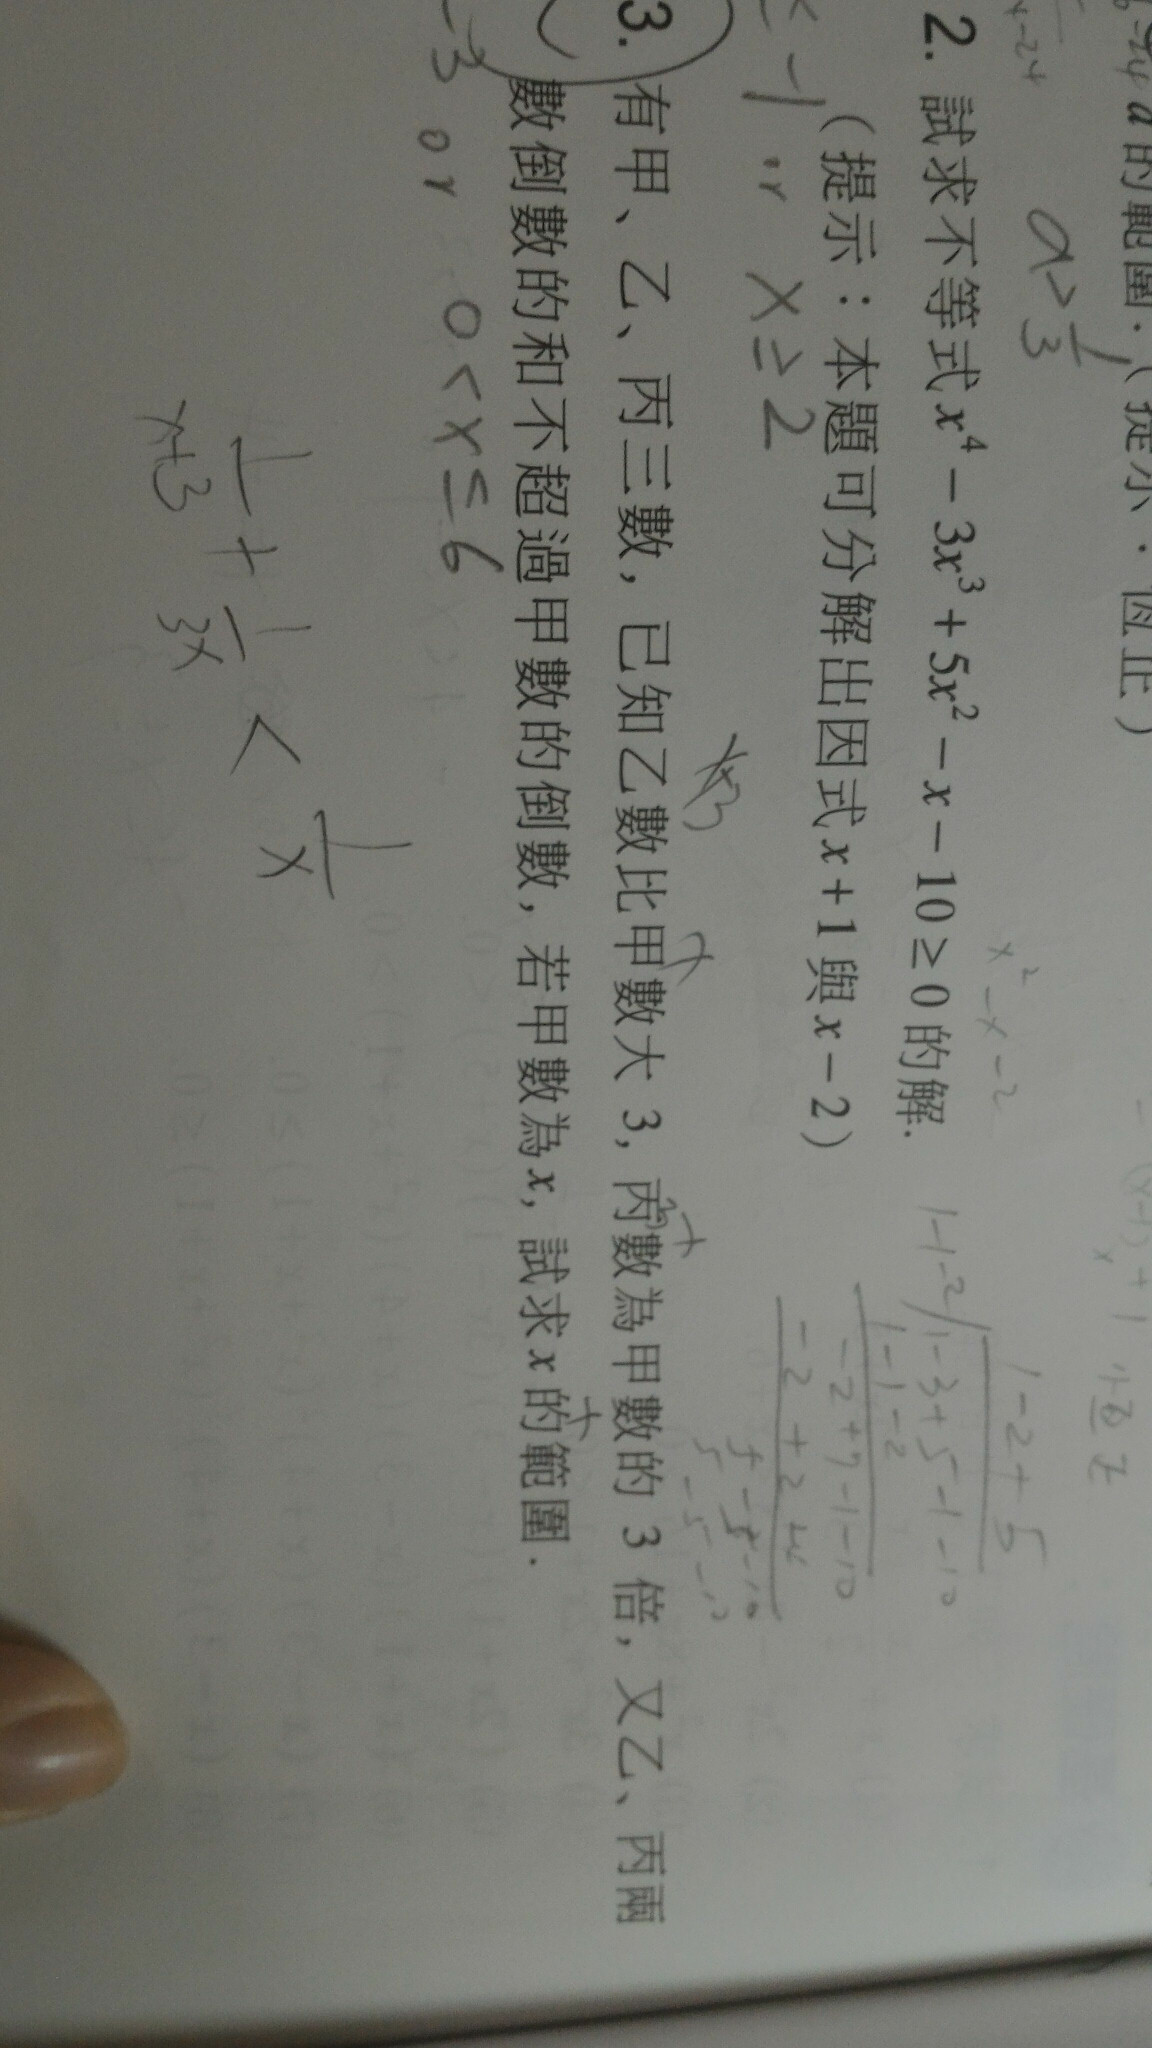 a 的範圍.(提示:恆正)
a > 1/3
2. 試求不等式 x⁴ − 3x³ + 5x² − x − 10 ≥ 0 的解.
x² − x − 2
(提示:本題可分解出因式 x + 1 與 x − 2)
1 − 2 + 5
1 − 1 − 2 1 − 3 + 5 − 1 − 10
1 − 1 − 2
− 2 + 7 − 1 − 10
≤ −1 or x ≥ 2
3. 有甲、乙、丙三數, 已知乙數比甲數大 3, 丙數為甲數的 3 倍, 又乙、丙兩
數倒數的和不超過甲數的倒數, 若甲數為 x, 試求 x 的範圍.
−3 or 0 < x ≤ 6
1/(x+3) + 1/(3x) < 1/x